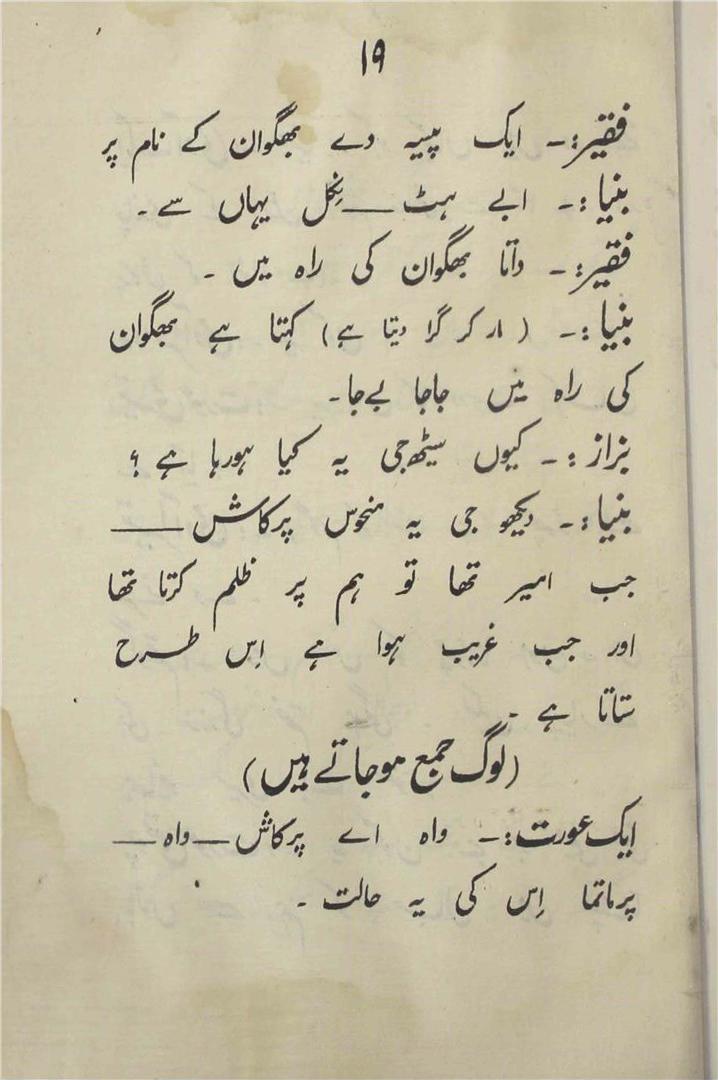 ۱۹
فقیر:۔ ایک پیسہ دے بھگوان کے نام پر
بنیا:۔ ابے ہٹ ـــــ نِکل یہاں سے۔
فقیر:۔ داتا بھگوان کی راہ میں ۔
بنیا:۔ (مار کر گرا دیتا ہے) کہتا ہے بھگوان
کی راہ میں جاجا بےجا۔
بزاز:۔ کیوں سیٹھ جی یہ کیا ہورہا ہے ؟
بنیا:۔ دیکھو جی یہ منحوس پرکاش ـــــ
جب امیر تھا تو ہم پر ظلم کرتا تھا
اور جب غریب ہوا ہے اِس طرح
ستاتا ہے ۔
(لوگ جمع ہوجاتے ہیں)
ایک عورت:۔ واہ اے پرکاش ـــ واہ ـــ
پرماتما اِس کی یہ حالت ۔